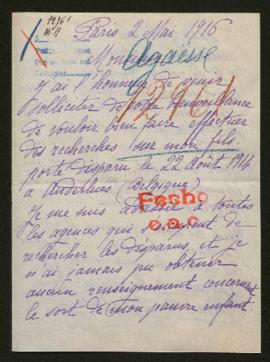 Paris 2 Mai 1916
Agasse
J'ai l'honneur de venir
solliciter de votre bienveillance
de vouloir bien faire effectuer
des recherches sur mon fils
porté disparu le 22 Août 1914
à Anderlues (Belgique)
Je me suis adressé à toutes
les agences qui s'occupent de
rechercher les disparus, et je
n'ai jamais pu obtenir
aucun renseignement concernant
le sort de mon pauvre enfant.